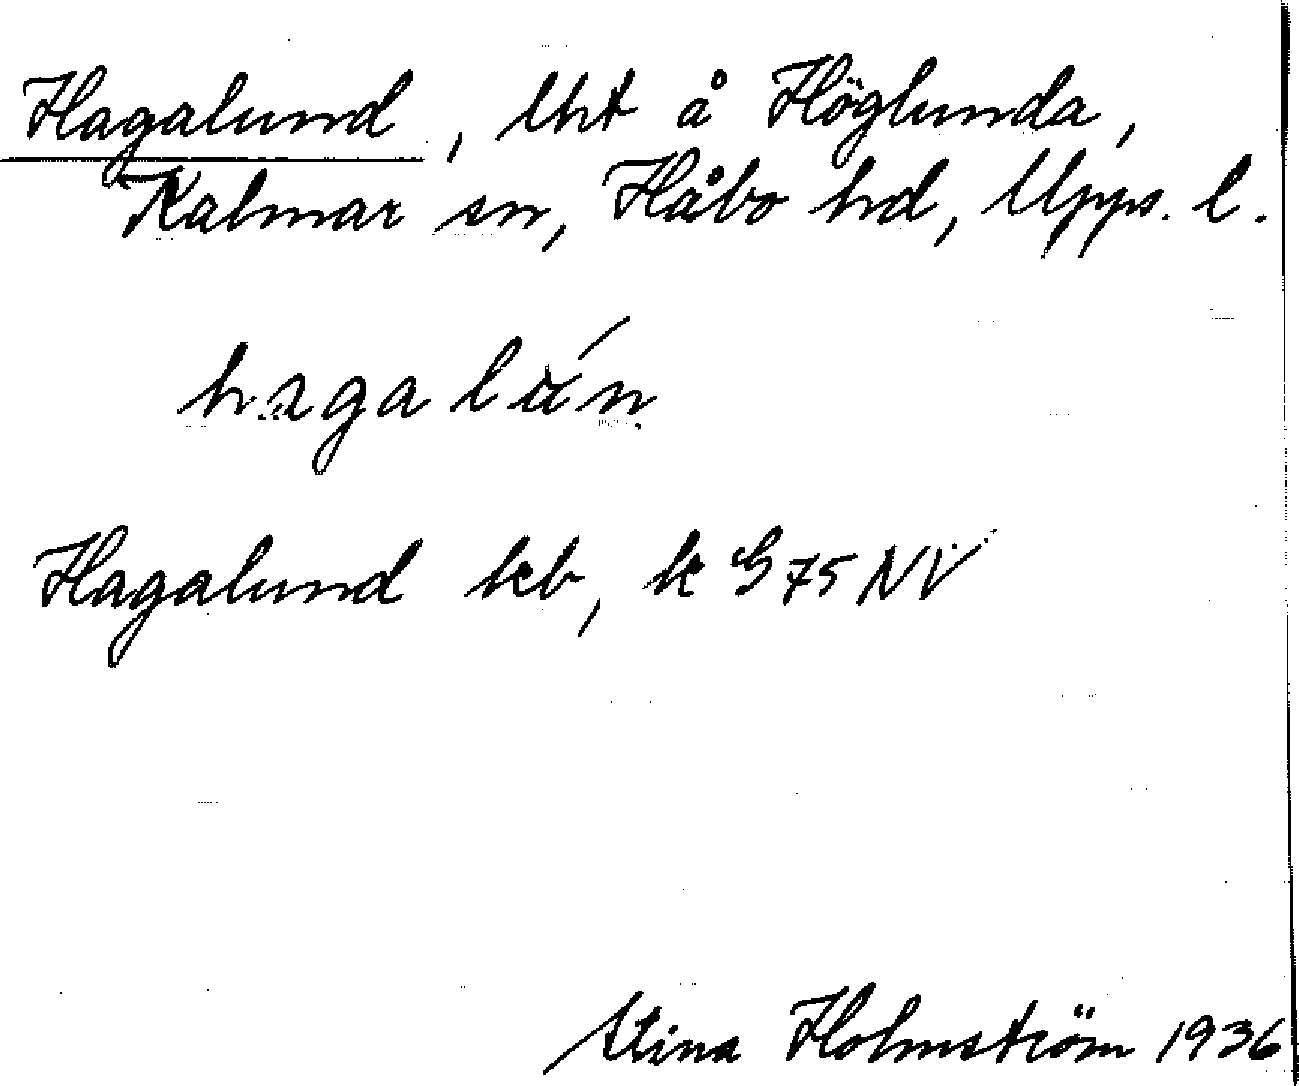 Hagalund, lht å Höglunda,
Kalmar sn, Håbo hd, Upps. l.
hagalún
Hagalund kb, k G 75 NV
Stina Holmström 1936